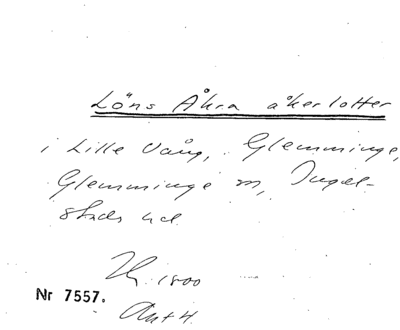 Löns Åkra åkerlotter
i Lille Vång, Glemminge,
Glemminge sn, Ingel-
stads hd.
1800
Nr 7557.
Akt 4.